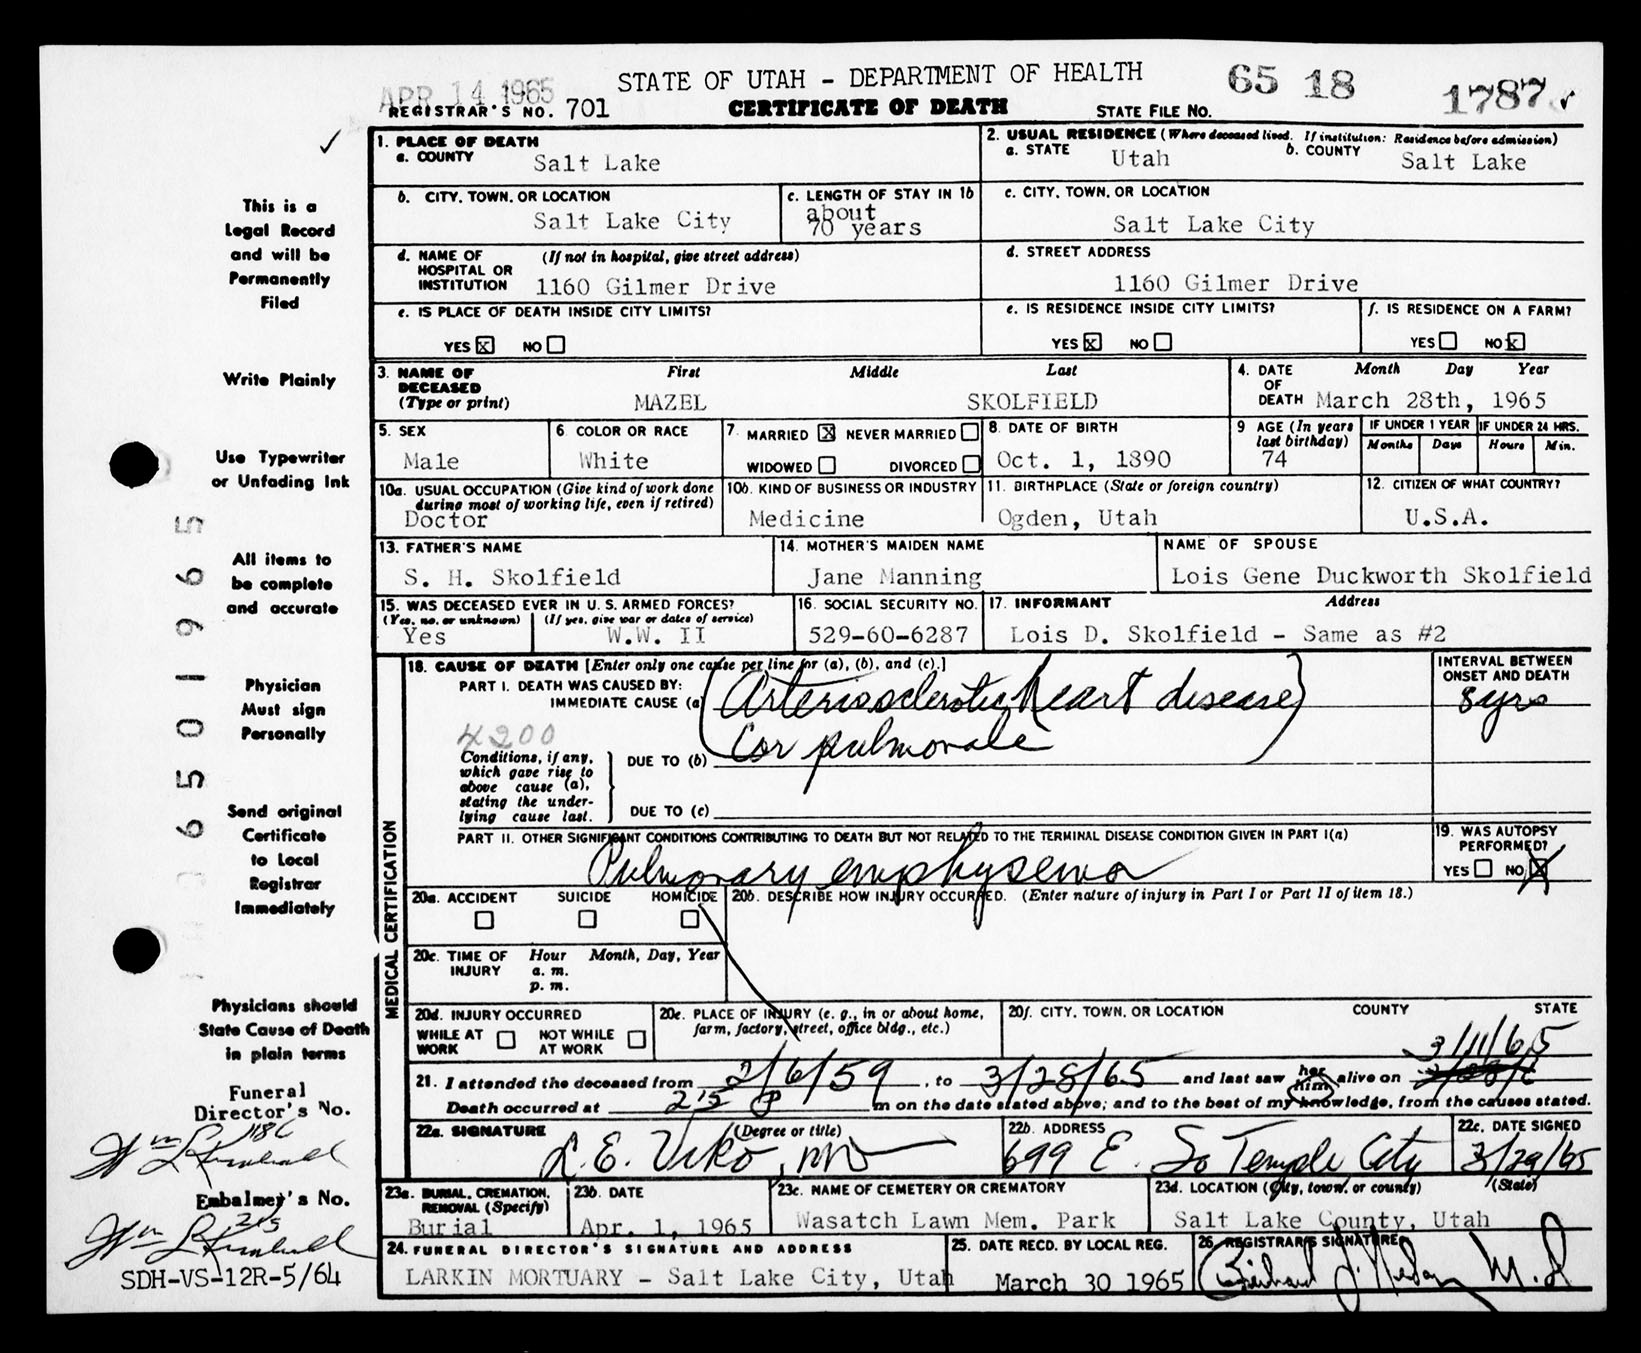 APR 14 1965
STATE OF UTAH - DEPARTMENT OF HEALTH
65 18 1787 ✓
REGISTRAR'S NO. 701
CERTIFICATE OF DEATH
STATE FILE NO.
This is a
Legal Record
and will be
Permanently
Filed
Write Plainly
Use Typewriter
or Unfading Ink
All items to
be complete
and accurate
Physician
Must sign
Personally
Send original
Certificate
to Local
Registrar
Immediately
Physicians should
State Cause of Death
in plain terms
Funeral
Director's No.
1186
Embalmer's No.
215
SDH-VS-12R-5/64
1. PLACE OF DEATH
a. COUNTY Salt Lake
2. USUAL RESIDENCE (Where deceased lived. If institution: Residence before admission)
a. STATE Utah b. COUNTY Salt Lake
b. CITY, TOWN, OR LOCATION
Salt Lake City
c. LENGTH OF STAY IN 1b
about
70 years
c. CITY, TOWN, OR LOCATION
Salt Lake City
d. NAME OF (If not in hospital, give street address)
HOSPITAL OR
INSTITUTION 1160 Gilmer Drive
d. STREET ADDRESS
1160 Gilmer Drive
e. IS PLACE OF DEATH INSIDE CITY LIMITS?
YES x NO
e. IS RESIDENCE INSIDE CITY LIMITS?
YES x NO
f. IS RESIDENCE ON A FARM?
YES NO x
3. NAME OF DECEASED First Middle Last
(Type or print) MAZEL SKOLFIELD
4. DATE OF DEATH Month Day Year
March 28th, 1965
5. SEX
Male
6. COLOR OR RACE
White
7. MARRIED X NEVER MARRIED
WIDOWED DIVORCED
8. DATE OF BIRTH
Oct. 1, 1890
9 AGE (In years last birthday)
74
IF UNDER 1 YEAR IF UNDER 24 HRS.
Months Days Hours Min.
10a. USUAL OCCUPATION (Give kind of work done
during most of working life, even if retired)
Doctor
10b. KIND OF BUSINESS OR INDUSTRY
Medicine
11. BIRTHPLACE (State or foreign country)
Ogden, Utah
12. CITIZEN OF WHAT COUNTRY?
U.S.A.
13. FATHER'S NAME
S. H. Skolfield
14. MOTHER'S MAIDEN NAME
Jane Manning
NAME OF SPOUSE
Lois Gene Duckworth Skolfield
15. WAS DECEASED EVER IN U. S. ARMED FORCES?
(Yes, no, or unknown) (If yes, give war or dates of service)
Yes W.W. II
16. SOCIAL SECURITY NO.
529-60-6287
17. INFORMANT Address
Lois D. Skolfield - Same as #2
MEDICAL CERTIFICATION
18. CAUSE OF DEATH [Enter only one cause per line for (a), (b), and (c).]
PART I. DEATH WAS CAUSED BY:
IMMEDIATE CAUSE (a) Arteriosclerotic heart disease
4200
Cor pulmonale
INTERVAL BETWEEN
ONSET AND DEATH
8 yrs
Conditions, if any,
which gave rise to
above cause (a),
stating the under-
lying cause last.
DUE TO (b)
DUE TO (c)
PART II. OTHER SIGNIFICANT CONDITIONS CONTRIBUTING TO DEATH BUT NOT RELATED TO THE TERMINAL DISEASE CONDITION GIVEN IN PART I(a)
Pulmonary emphysema
19. WAS AUTOPSY
PERFORMED?
YES NO X
20a. ACCIDENT SUICIDE HOMICIDE
20b. DESCRIBE HOW INJURY OCCURRED. (Enter nature of injury in Part I or Part II of item 18.)
20c. TIME OF INJURY Hour Month, Day, Year
a. m.
p. m.
20d. INJURY OCCURRED
WHILE AT WORK NOT WHILE AT WORK
20e. PLACE OF INJURY (e. g., in or about home,
farm, factory, street, office bldg., etc.)
20f. CITY, TOWN, OR LOCATION COUNTY STATE
3/11/65
21. I attended the deceased from 2/6/59, to 3/28/65 and last saw her him alive on
Death occurred at 2:15 P m on the date stated above; and to the best of my knowledge, from the causes stated.
22a. SIGNATURE (Degree or title)
L. E. Viko, MD
22b. ADDRESS
699 E. So Temple City
22c. DATE SIGNED
3/29/65
23a. BURIAL, CREMATION,
REMOVAL (Specify)
Burial
23b. DATE
Apr. 1, 1965
23c. NAME OF CEMETERY OR CREMATORY
Wasatch Lawn Mem. Park
23d. LOCATION (City, town, or county) (State)
Salt Lake County, Utah
24. FUNERAL DIRECTOR'S SIGNATURE AND ADDRESS
LARKIN MORTUARY - Salt Lake City, Utah
25. DATE RECD. BY LOCAL REG.
March 30 1965
26. REGISTRAR'S SIGNATURE
M.D